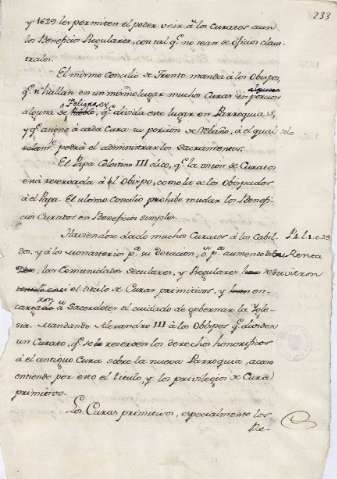 233
y 1629 les permiten el poder unir á los Curatos aun
los Beneficios Regulares, con tal q.e no sean de oficios claus
trales.
El mismo Concilio de Trento manda á los Obispos,
q.e si hallan en un mismo lugar muchos Curas sin
alguna de Feligreses, q.e divida este lugar en Parroquias,
y q.e asigne á cada Cura su porcion de á el qual
solam.te podrá el administrar los Sacramentos.
El Papa Celestino III dice, q.e la union de Curatos
está reservada á el Obispo, como la de los Obispados
á el Papa. El ultimo Concilio prohibe mudar los Benefi
cios Curatos en Beneficios simples.
Haviendose dado muchos Curatos á los Cabil
dos, y á los Monasterios p.a su dotacion, ó p.a aumento
las Comunidades Seculares, y Regulares retuvieron
el titulo de Curas primitivos, y en
cargaron á Sacerdotes el cuidado de gobernar la Igle
sia. Mandando Alexandro III á los Obispos q.e dividen
un Curato, q.e se reserven los derechos honorificos
á el antiguo Cura sobre la nueva Parroquia, acon
por esto el titulo, y los privilegios de Cura
primitivo.
Los Curas primitivos, especialmente los